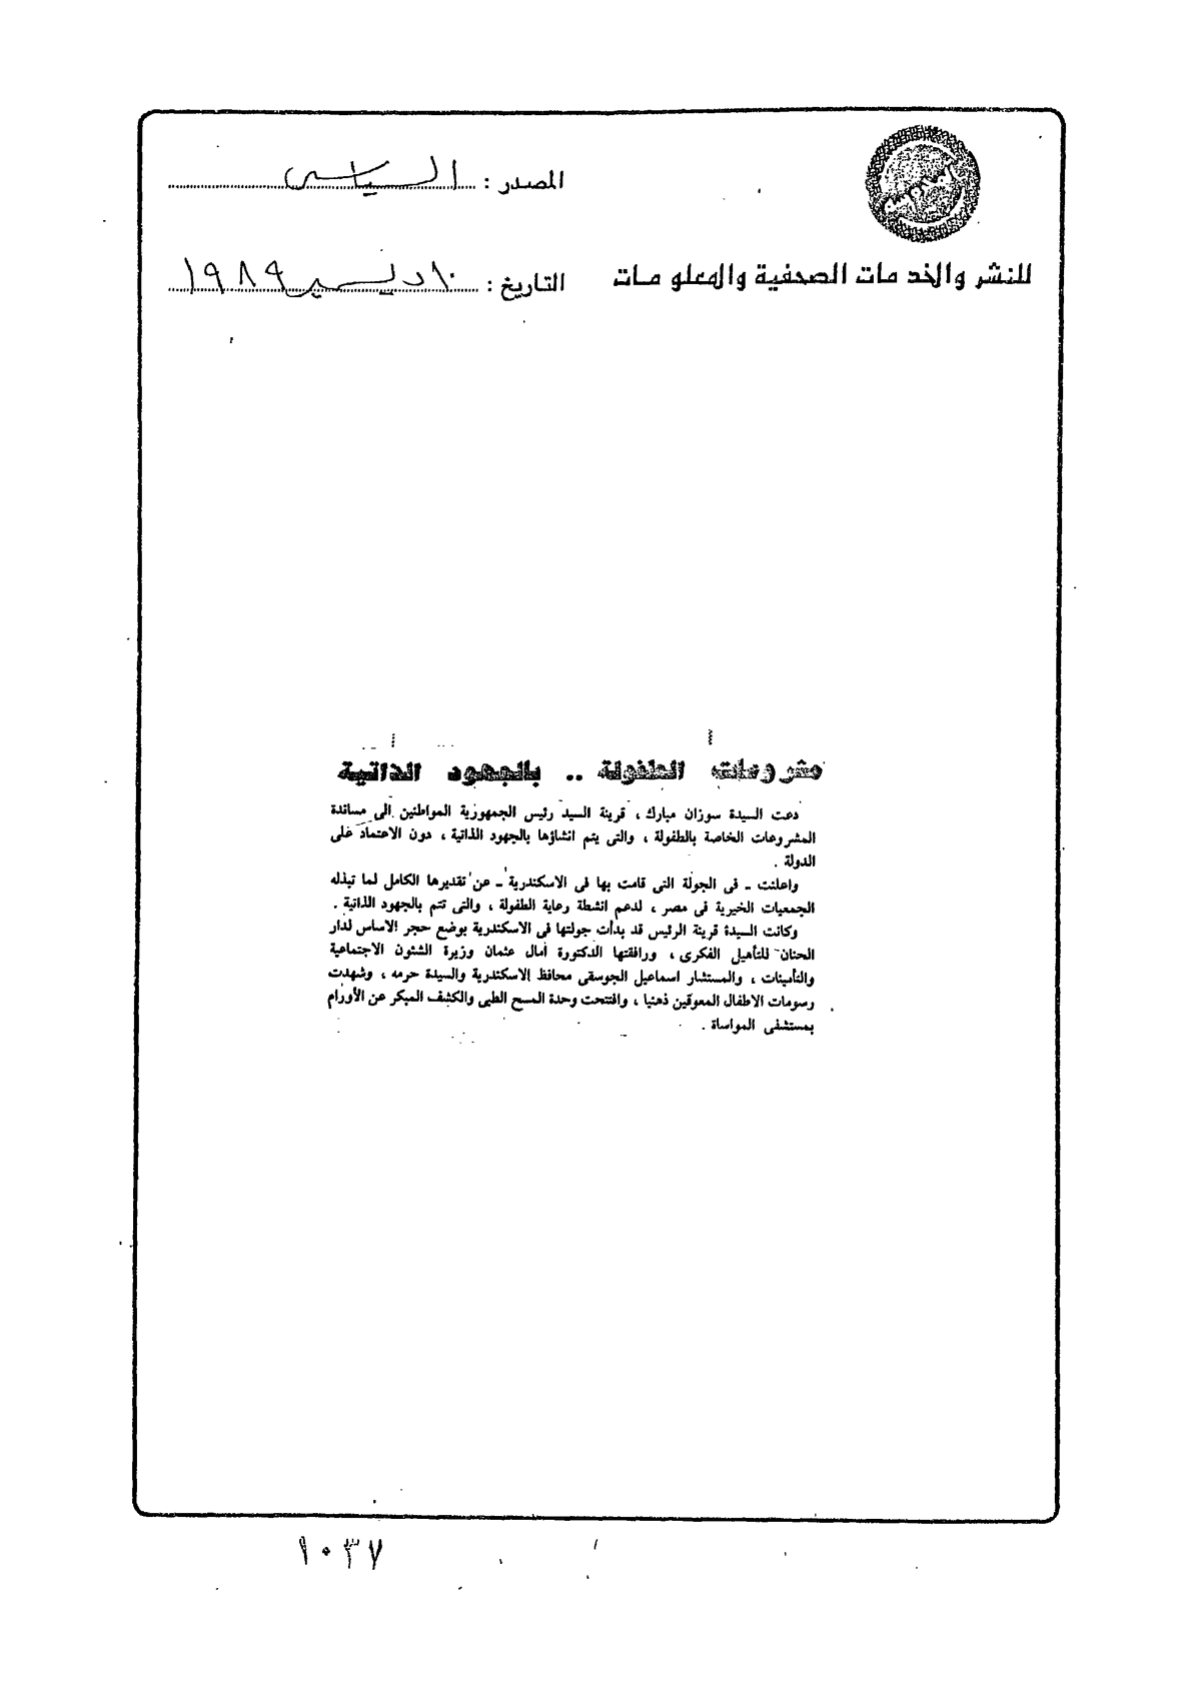 المصدر : السياسى
للنشر والخدمات الصحفية والمعلومات
التاريخ : ١٠ ديسمبر ١٩٨٩
مشروعات الطفولة .. بالجهود الذاتية
دعت السيدة سوزان مبارك ، قرينة السيد رئيس الجمهورية المواطنين الى مساندة
المشروعات الخاصة بالطفولة ، والتى يتم انشاؤها بالجهود الذاتية ، دون الاعتماد على
الدولة .
واعلنت - فى الجولة التى قامت بها فى الاسكندرية - عن تقديرها الكامل لما تبذله
الجمعيات الخيرية فى مصر ، لدعم انشطة رعاية الطفولة ، والتى تتم بالجهود الذاتية .
وكانت السيدة قرينة الرئيس قد بدأت جولتها فى الاسكندرية بوضع حجر الاساس لدار
الحنان للتأهيل الفكرى ، ورافقتها الدكتورة امال عثمان وزيرة الشئون الاجتماعية
والتأمينات ، والمستشار اسماعيل الجوسقى محافظ الاسكندرية والسيدة حرمه ، وشهدت
رسومات الاطفال المعوقين ذهنيا ، وافتتحت وحدة المسح الطبى والكشف المبكر عن الأورام
بمستشفى المواساة .
١٠٣٧